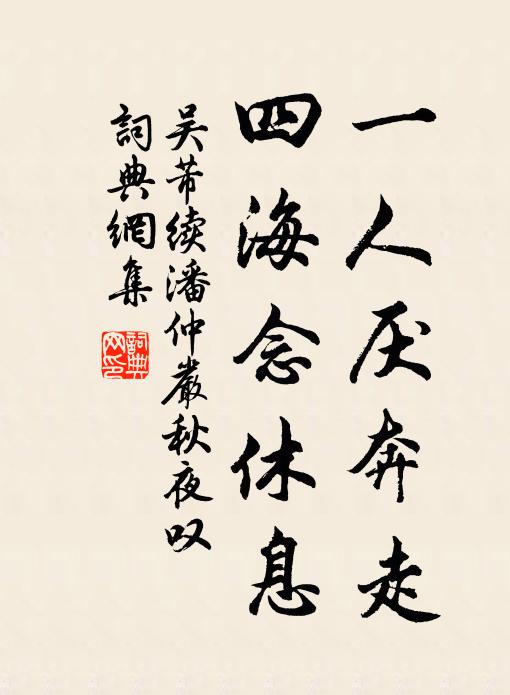 一人厌奔走
四海念休息
吴芾续潘仲严秋夜叹
詞典網集
詞典网印